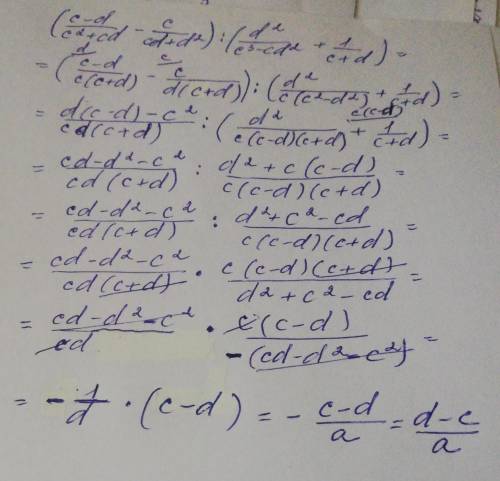 (c-d/c²+cd - c/cd+d²) : (d²/c³-cd² + 1/c+d) =
= (d c-d/c(c+d) - c c/d(c+d)) : (d²/c(c²-d²) + 1/c+d) =
= d(c-d)-c²/cd(c+d) : (d²/c(c-d)(c+d) + c(c-d) 1/c+d) =
= cd-d²-c²/cd(c+d) : d²+c(c-d)/c(c-d)(c+d) =
= cd-d²-c²/cd(c+d) : d²+c²-cd/c(c-d)(c+d) =
= cd-d²-c²/cd(c+d) · c(c-d)(c+d)/d²+c²-cd =
= cd-d²-c²/cd · c(c-d)/-(cd-d²-c²) =
= -1/d · (c-d) = - c-d/a = d-c/a